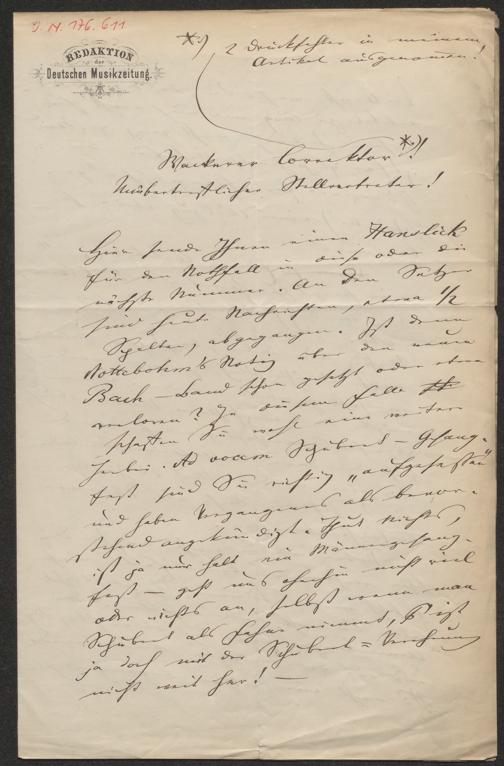 J. N. 176.611
REDAKTION
der
Deutschen Musikzeitung.
*) 2 Druckfehler in meinem
Artikel ausgenommen!
Wackerer Correktor *)!
Unübertrefflicher Stellvertreter!
Hier sende Ihnen einen Hanslick
für den Nothfall in diese oder die
nächste Nummer. An den Setzer
sind heute Nachrichten, etwa 1/2
Spalten, abgegangen. Ist denn
Nottebohm's Notiz über den neuen
Bach-Band schon gesetzt oder etwa
verloren? In diesem Falle
schaffen Sie wohl eine weitere
herbei. Ad vocem Schubert-Gesang-
fest sind Sie richtig „aufgesessen"
und haben Vergangenes als bevor-
stehend angekündigt. Thut nichts,
ist ja nur halt ein Männergesang-
fest – geht uns ohnehin nicht viel
oder nichts an, selbst wenn man
Schubert als Fahne nimmt, ist
ja doch mit der Schubert=Verehrung
nicht weit her! —